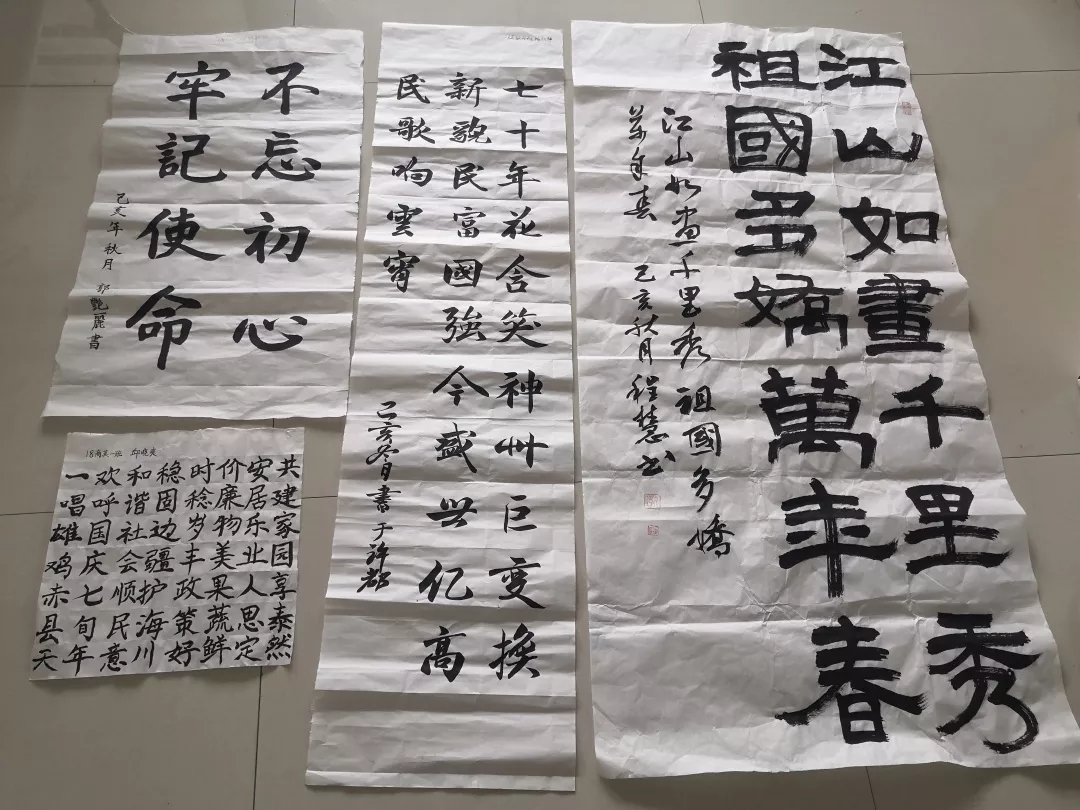 不忘初心
牢記使命
己亥年秋月 郭艷麗書
七十年花含笑神州巨变换
新貌民富國強今盛世亿高
民歌响雲霄
己亥冬月書于許都
江山如畫千里秀
祖國多嬌萬年春
江山如画千里秀祖國多嬌
萬年春 己亥秋月程慧书
18商英一班
一唱雄鸡赤县天
欢呼国庆七旬年
和谐社会顺民意
稳固边疆护海川
时稔岁丰政策好
价廉物美果蔬鲜
安居乐业人思定
共建家园享泰然